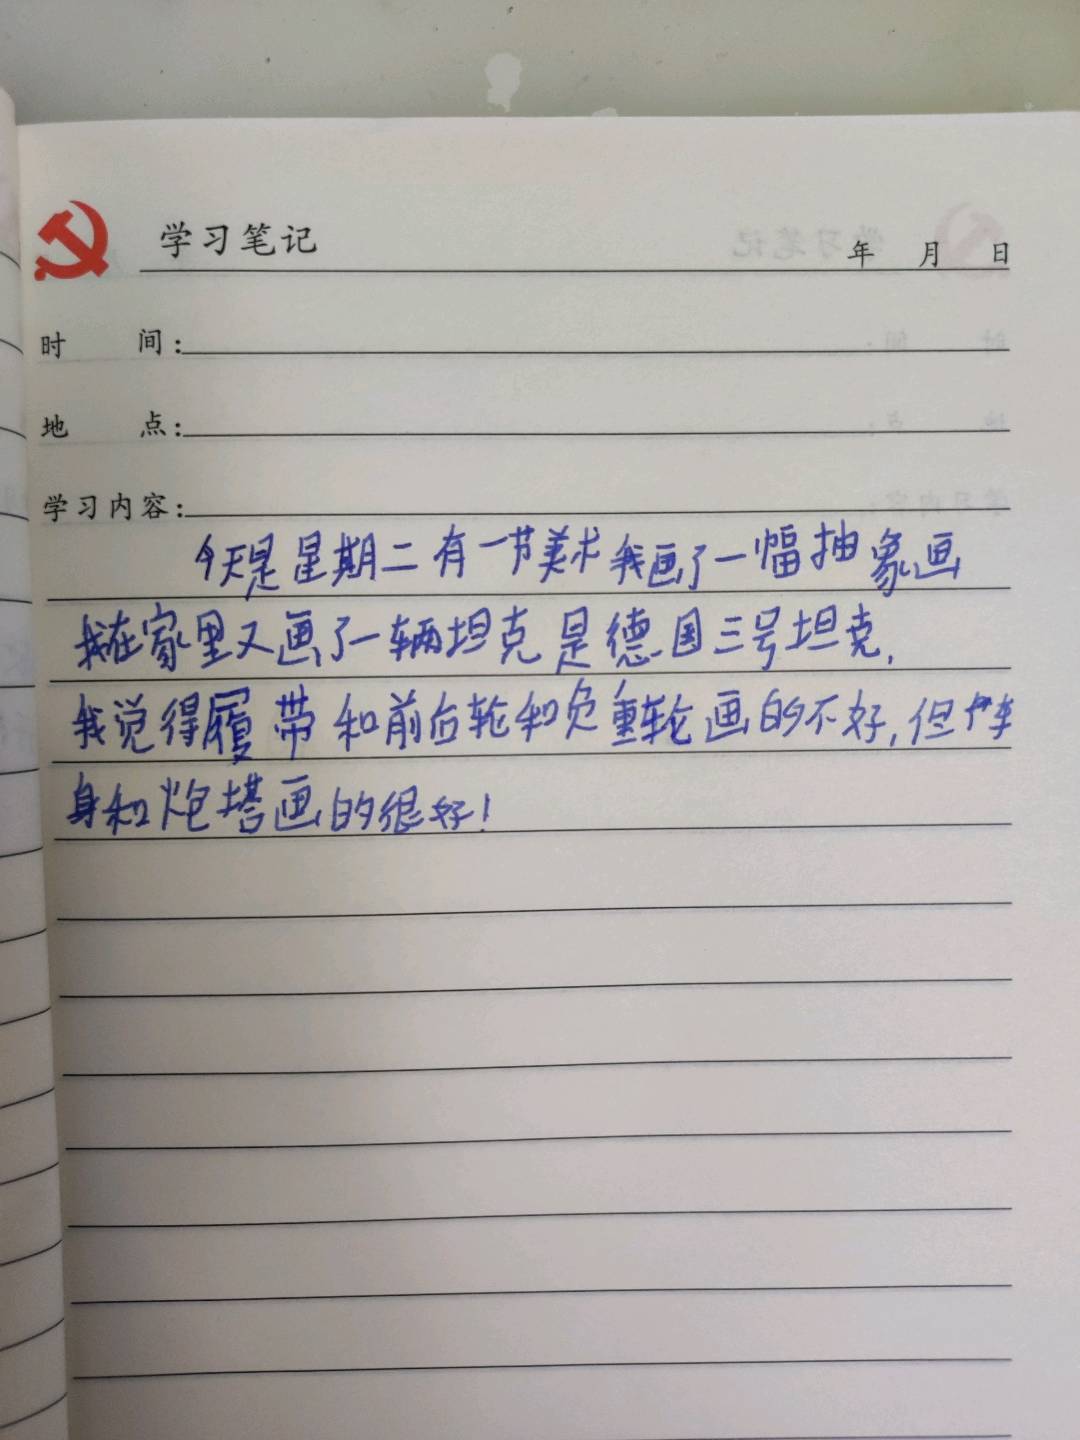 学习笔记
年 月 日
时 间:
地 点:
学习内容:
今天是星期二有一节美术我画了一幅抽象画
我在家里又画了一辆坦克是德国三号坦克,
我觉得履带和前后轮和负重轮画的不好,但
身和炮塔画的很好!